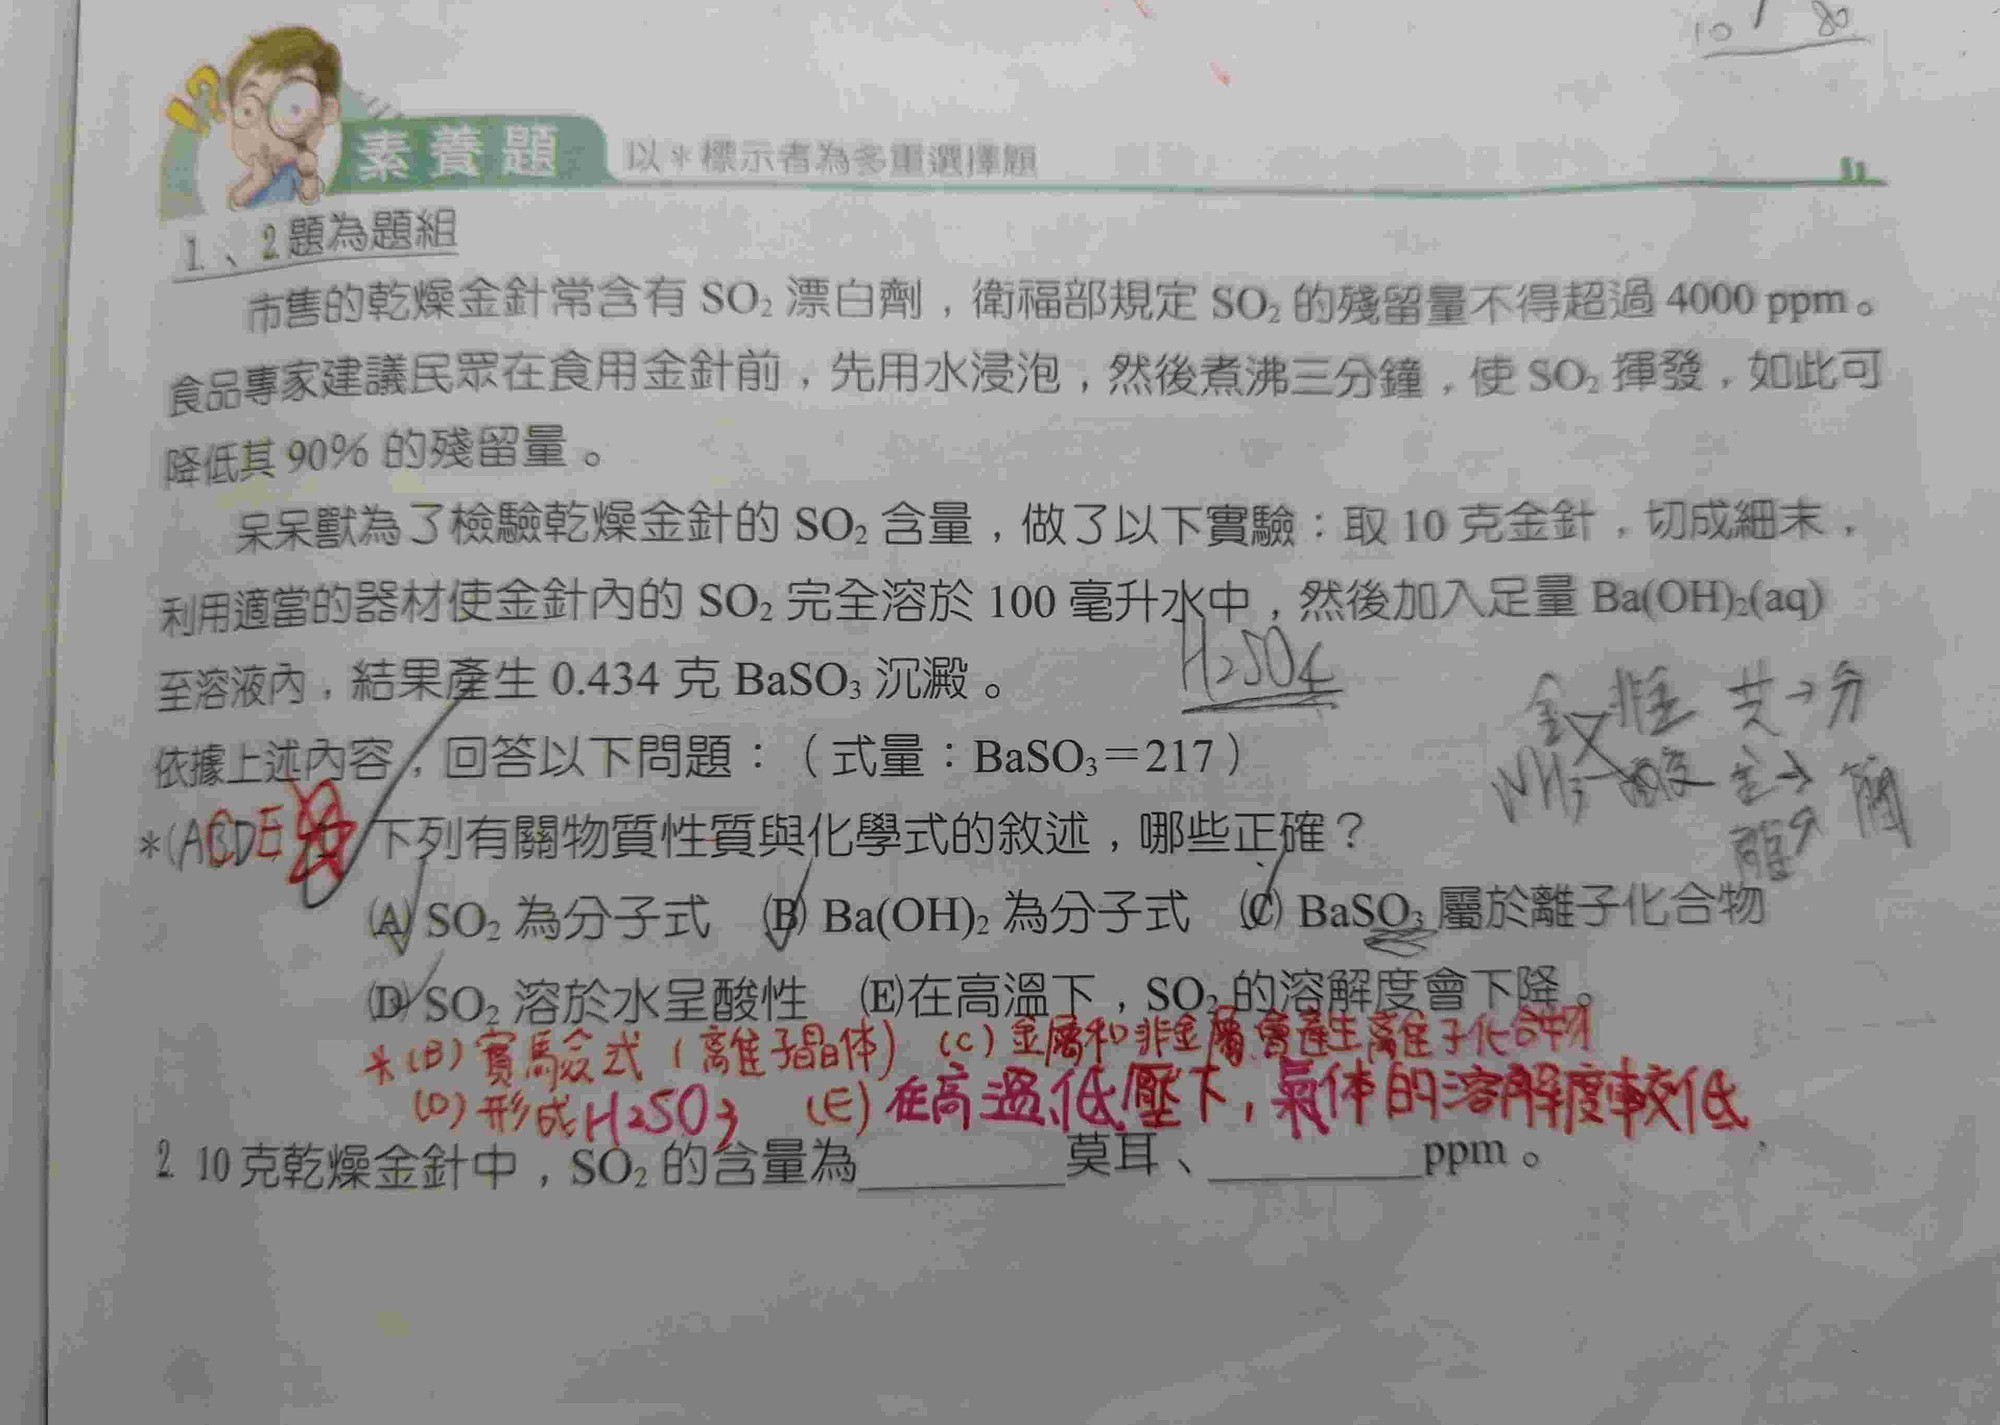 10 / 80
!?
素養題 以＊標示者為多重選擇題
1、2題為題組
市售的乾燥金針常含有 SO₂ 漂白劑，衛福部規定 SO₂ 的殘留量不得超過 4000 ppm。
食品專家建議民眾在食用金針前，先用水浸泡，然後煮沸三分鐘，使 SO₂ 揮發，如此可
降低其 90% 的殘留量。
呆呆獸為了檢驗乾燥金針的 SO₂ 含量，做了以下實驗：取 10 克金針，切成細末，
利用適當的器材使金針內的 SO₂ 完全溶於 100 毫升水中，然後加入足量 Ba(OH)₂(aq)
至溶液內，結果產生 0.434 克 BaSO₃ 沉澱。
H₂SO₄
金 非金 共→分
依據上述內容，回答以下問題：（式量：BaSO₃＝217）
NH₃ 酸 金→ 簡
離
＊(ACDE 下列有關物質性質與化學式的敘述，哪些正確？
(A) SO₂ 為分子式 (B) Ba(OH)₂ 為分子式 (C) BaSO₃ 屬於離子化合物
(D) SO₂ 溶於水呈酸性 (E)在高溫下，SO₂ 的溶解度會下降。
＊(B) 實驗式 (離子晶体) (C) 金屬和非金屬會產生離子化合物
(D) 形成 H₂SO₃ (E) 在高溫、低壓下，氣体的溶解度較低
2 10 克乾燥金針中，SO₂ 的含量為________莫耳、________ppm。